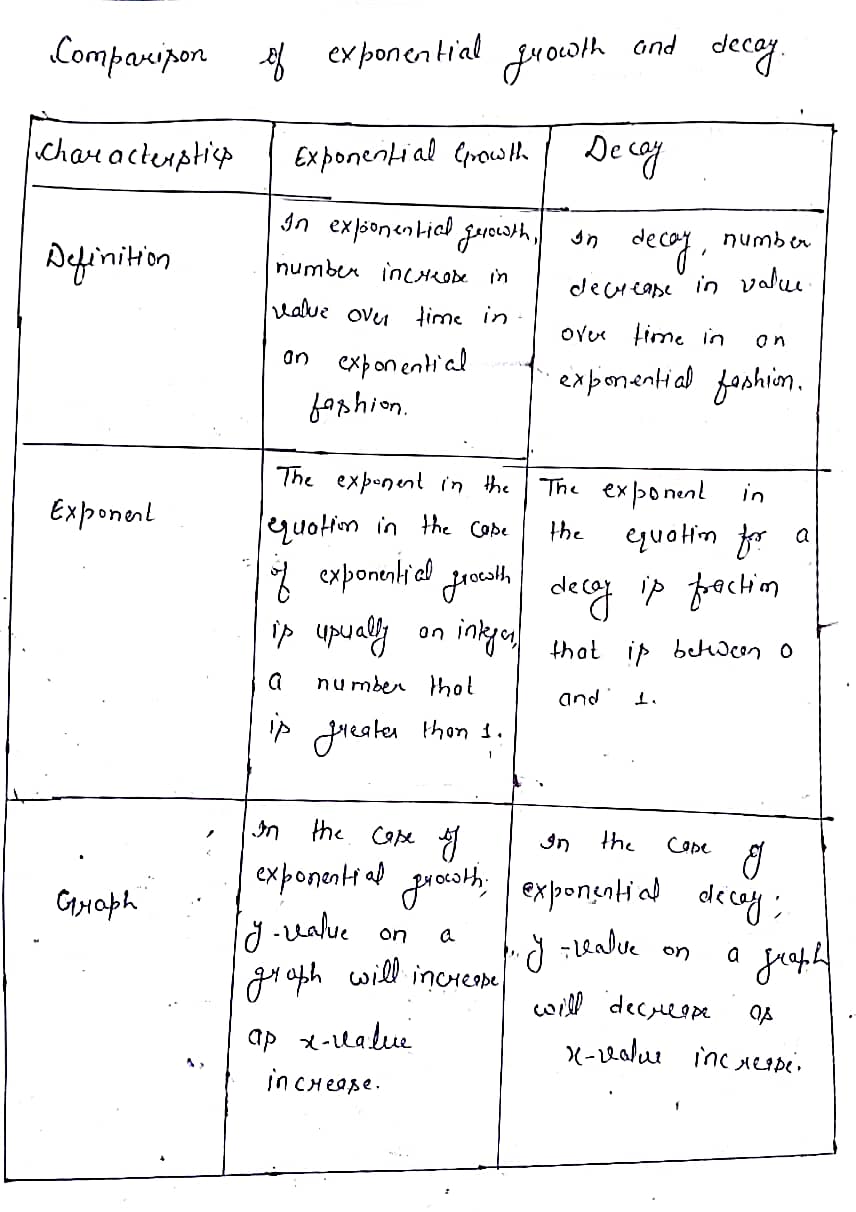 Comparison of exponential growth and decay.
Characterstics Exponential Growth Decay
Definition
In exponential growth,
number increase in
value over time in
an exponential
fashion.
In decay, number
decrease in value
over time in on
exponential fashion.
Exponent
The exponent in the
equation in the case
of exponential growth
is usually an integer,
a number that
is greater than 1.
The exponent in
the equation for a
decay is fraction
that is between 0
and 1.
Graph
In the case of
exponential growth;
y-value on a
graph will increase
as x-value
increase.
In the case of
exponential decay;
y-value on a graph
will decrease as
x-value increase.